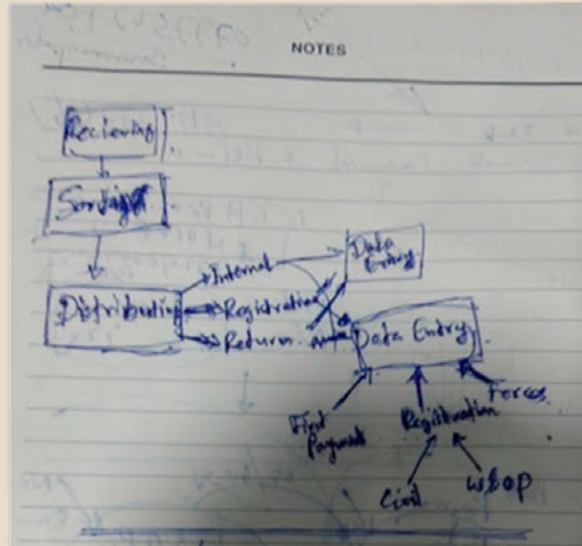 NOTES
Recieving
Sorting
Distributing
Internal
Registration
Return
Data
Entry
Data Entry
First
Payment
Registration
Forces
Civil
W&OP